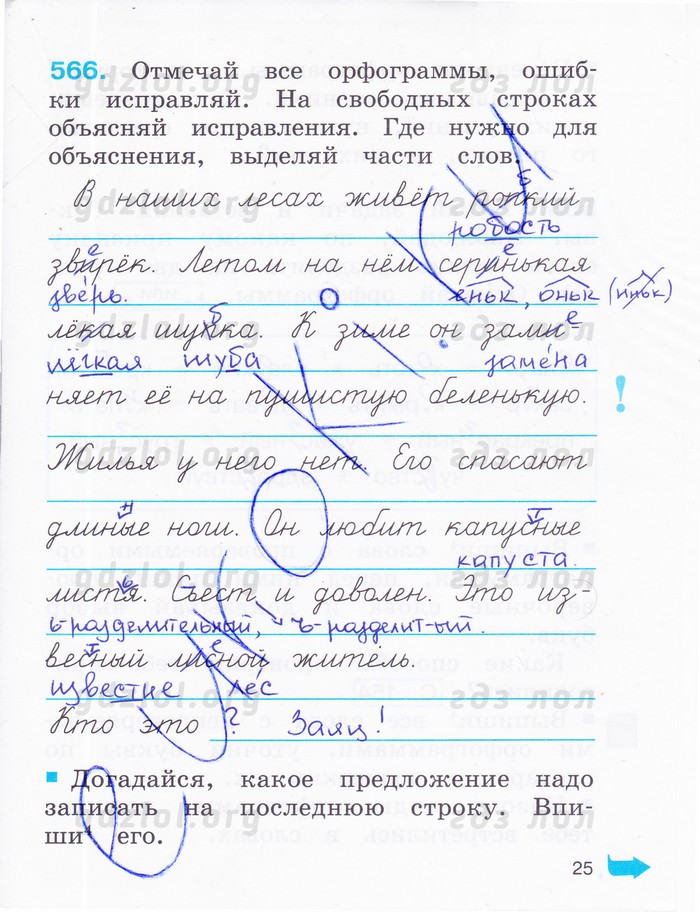 566. Отмечай все орфограммы, ошиб-
ки исправляй. На свободных строках
объясняй исправления. Где нужно для
объяснения, выделяй части слов.
gdzlol.org гдз лол
б
В наших лесах живёт ропкий
робость
е е
звирёк. Летом на нём серинькая
зверь. еньк, оньк (иньк)
б
лёкая шупка. К зиме он зами-
е
лёгкая шуба замена
няет её на пушистую беленькую. !
Жилья у него нет. Его спасают
н т
длиные ноги. Он любит капусные
капуста.
ь
листя. Съест и доволен. Это из-
ь-разделительный, ъ-разделит-ый.
т е
весный лисной житель.
известие лес
Кто это ? Заяц!
Догадайся, какое предложение надо
записать на последнюю строку. Впи-
ши⁴ его.
25